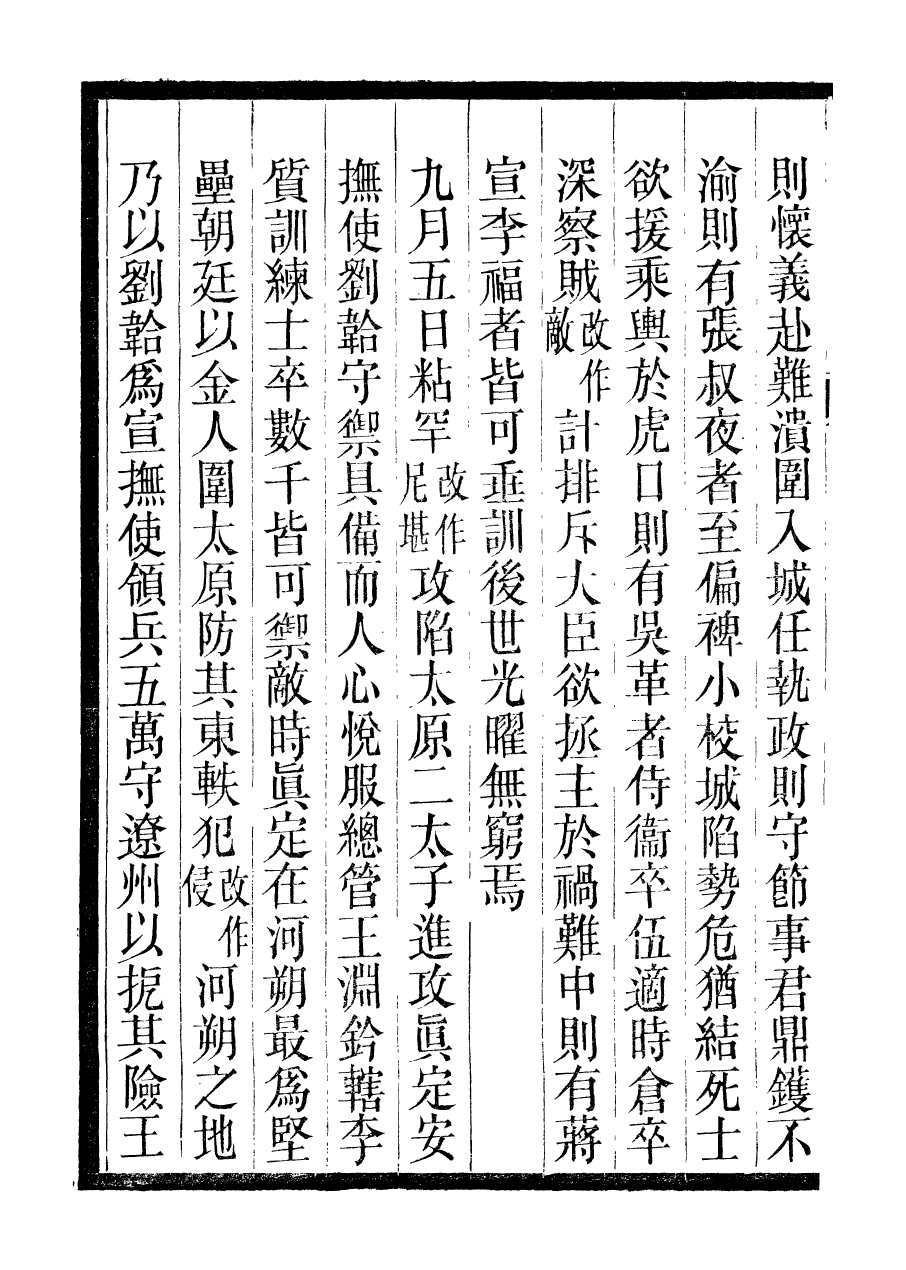 則懷義赴難潰圍入城任執政則守節事君鼎鑊不
渝則有張叔夜者至偏裨小校城陷勢危猶結死士
欲援乘輿於虎口則有吳革者侍衞卒伍適時倉卒
深察賊改作敵計排斥大臣欲拯主於禍難中則有蔣
宣李福者皆可垂訓後世光曜無窮焉
九月五日粘罕改作尼堪攻陷太原二太子進攻眞定安
撫使劉韐守禦具備而人心悅服總管王淵鈐轄李
質訓練士卒數千皆可禦敵時眞定在河朔最爲堅
壘朝廷以金人圍太原防其東軼犯改作侵河朔之地
乃以劉韐爲宣撫使領兵五萬守遼州以扼其險王